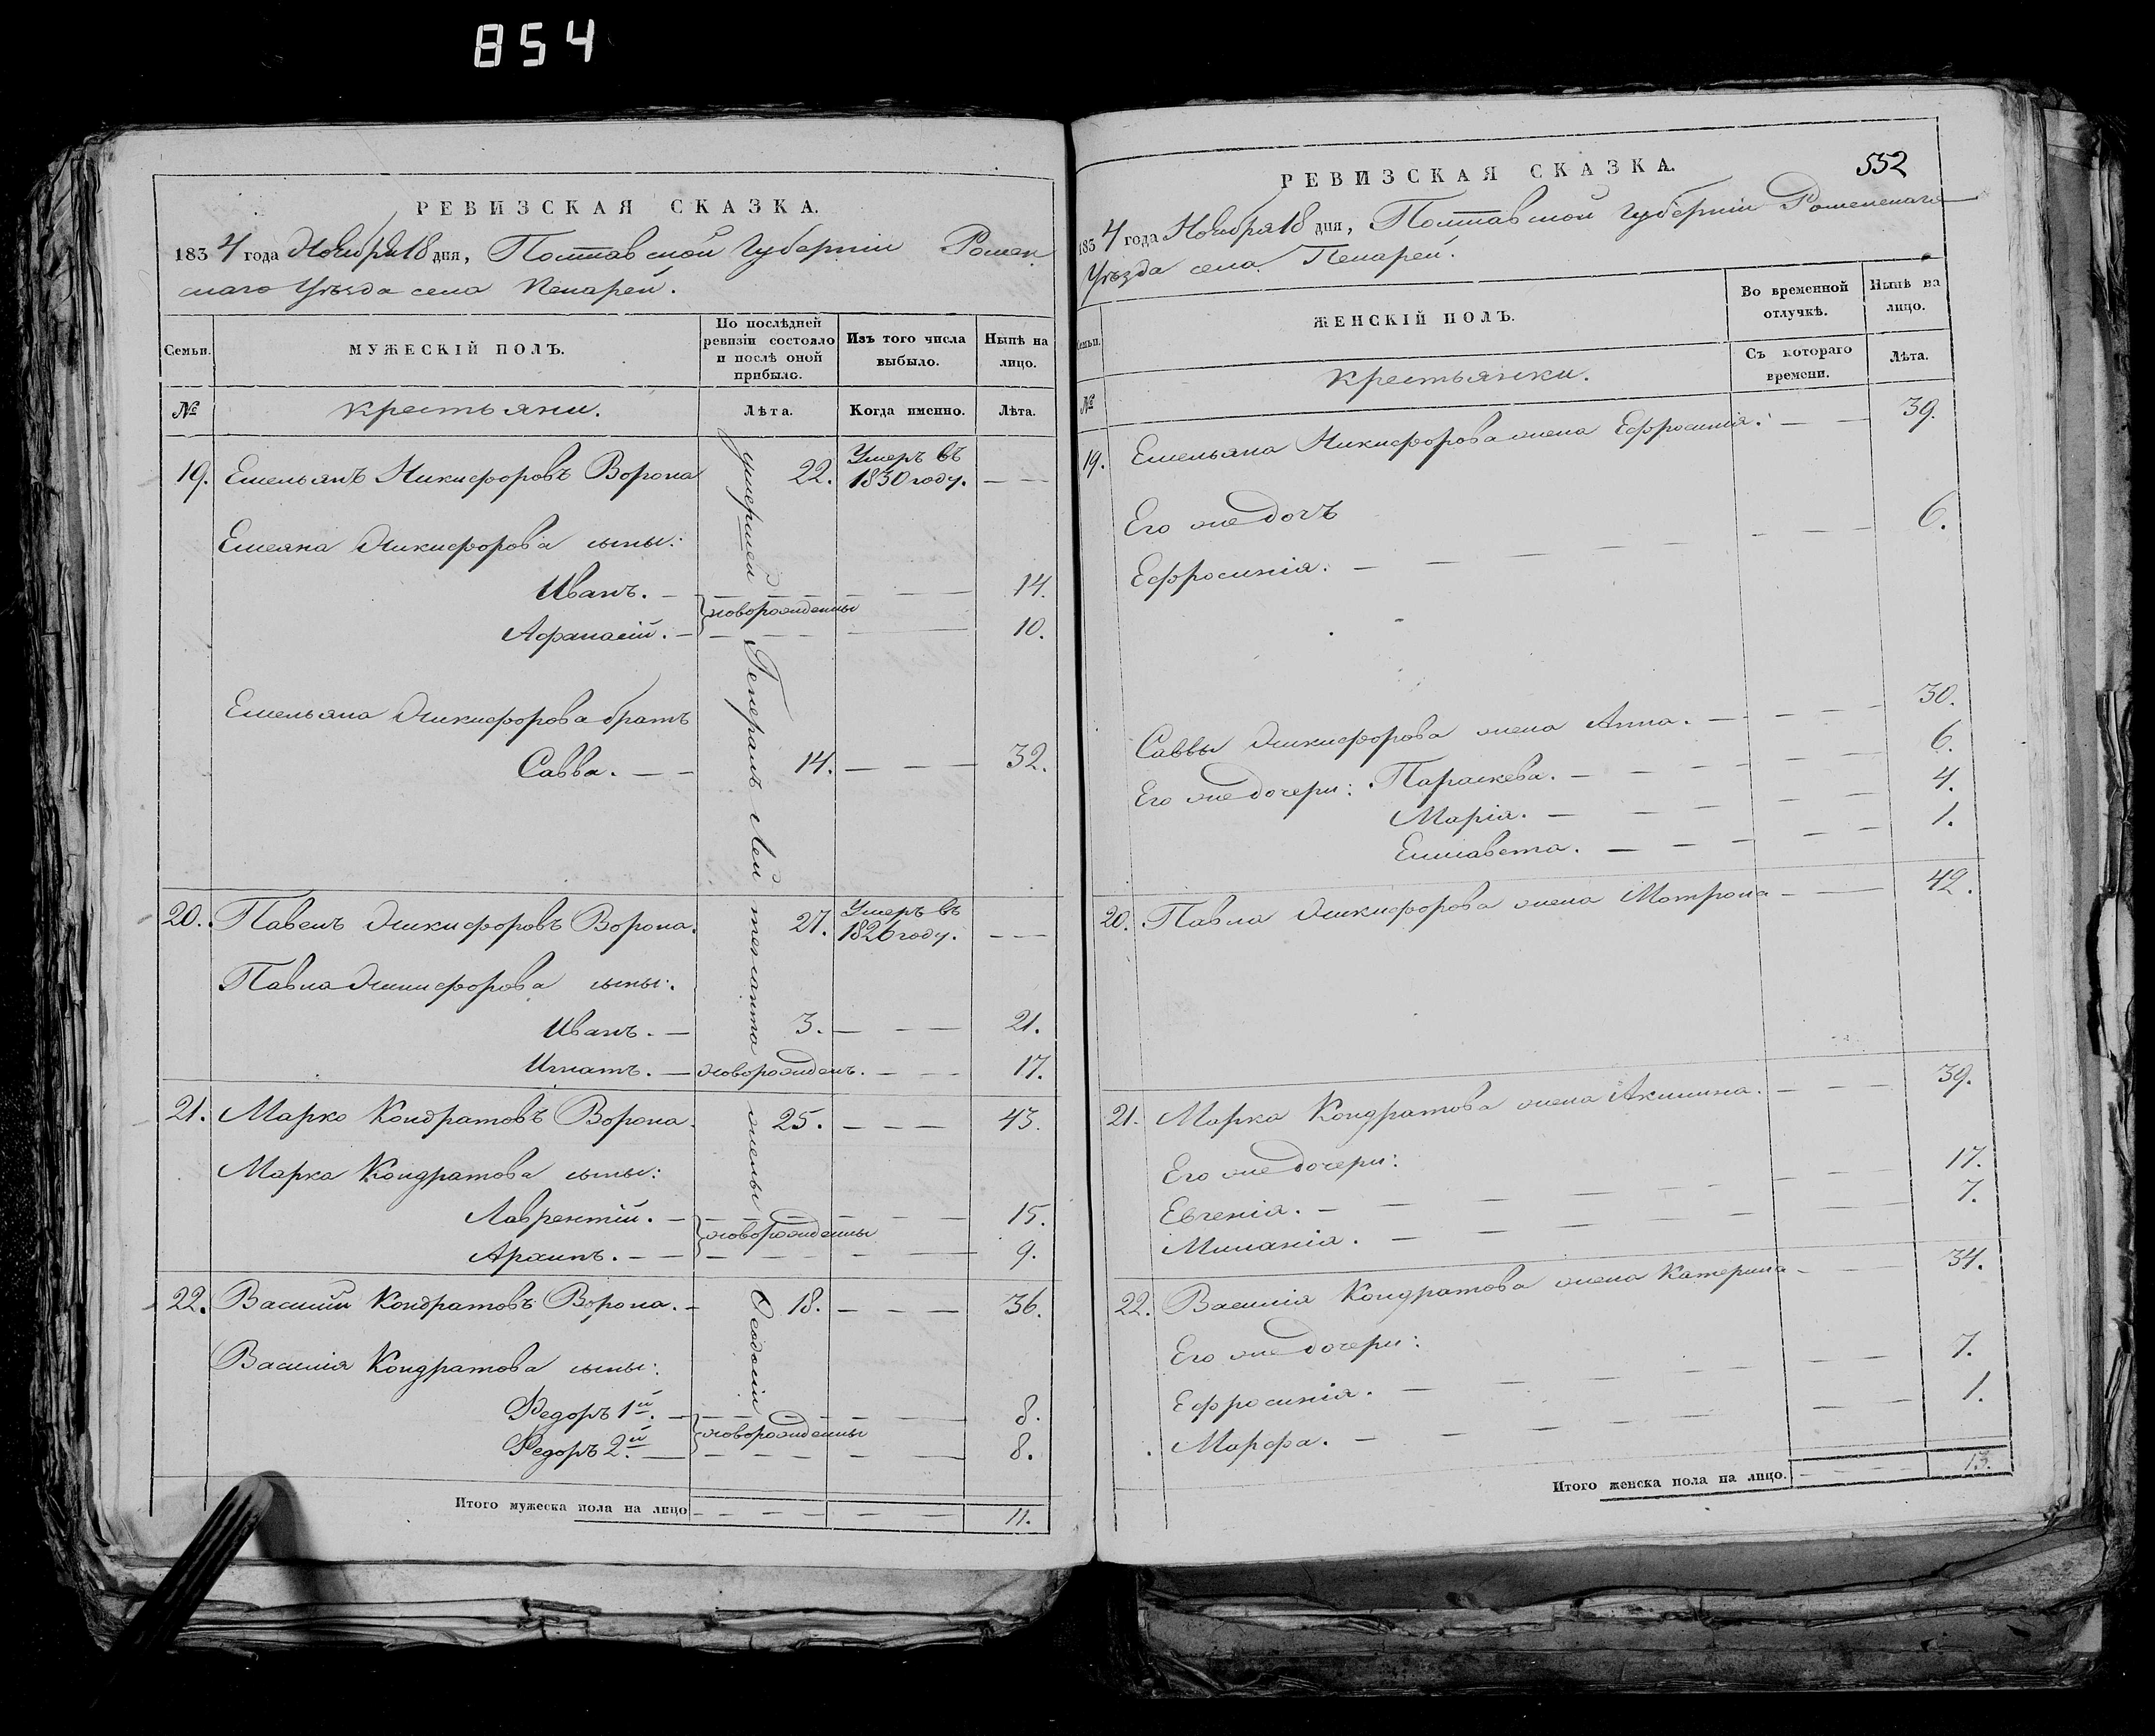 854
РЕВИЗСКАЯ СКАЗКА.
1834 года Ноября 18 дня, Полтавской Губерніи Ромен
скаго Уѣзда села Пекарей.
Семьи.
МУЖЕСКІЙ ПОЛЪ.
По послѣдней ревизіи состояло и послѣ оной прибыло.
Изъ того числа выбыло.
Нынѣ на лицо.
№
крестьяни.
Лѣта.
Когда именно.
Лѣта.
19. Емельянъ Никифоровъ Ворона 22. Умеръ въ 1830 году. — —
Емеяна Никифорова сыны:
Иванъ. — новорожденны 14.
Афанасій. — 10.
Емельяна Никифорова братъ
Савва. — — 14. — — — 32.
20. Павелъ Никифоровъ Ворона. 27. Умеръ въ 1826 году. — —
Павла Никифорова сыны:
Иванъ. — 3. — — — 21.
Игнатъ. — новорожденъ. — — — 17.
21. Марко Кондратовъ Ворона. 25. — — — 43.
Марка Кондратова сыны:
Лаврентій. — новорожденны 15.
Архипъ. — — 9.
22. Василій Кондратовъ Ворона. — 18. — — — 36.
Василія Кондратова сыны:
Федоръ 1й. — новорожденны 8.
Федоръ 2й. — 8.
умершей Генералъ Лейтенанта жены Феодосіи
Итого мужеска пола на лицо — — — — — 11.
РЕВИЗСКАЯ СКАЗКА.
552
1834 года Ноября 18 дня, Полтавской Губерніи Роменскаго
Уѣзда села Пекарей.
Семьи.
ЖЕНСКІЙ ПОЛЪ.
Во временной отлучкѣ.
Нынѣ на лицо.
№
крестьянки.
Съ котораго времени.
Лѣта.
19. Емельяна Никифорова жена Ефросинія. — — 39.
Его же дочъ
Ефросинія. — — — — — 6.
Саввы Никифорова жена Анна. — — — — 30.
Его же дочери: Параскева. — — — — 6.
Марія. — — — — 4.
Елисавета. — — — — 1.
20. Павла Никифорова жена Мотрона — — 42.
21. Марка Кондратова жена Акилина. — — — 39.
Его же дочери:
Евгенія. — — — — — 17.
Миланія. — — — — — 7.
22. Василія Кондратова жена Катерина — — 34.
Его же дочери:
Ефросинія. — — — — — 7.
Марфа. — — — — — 1.
Итого женска пола на лицо. — — — — 13.